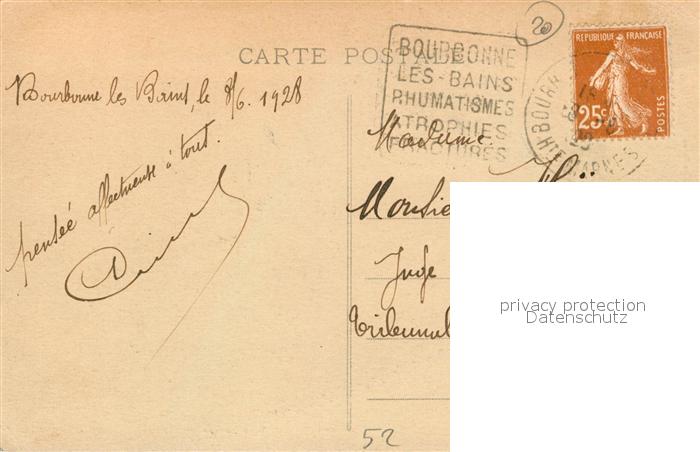 CARTE POSTALE
BOURBONNE
LES-BAINS
RHUMATISMES
ATROPHIES
FRACTURES
20
REPUBLIQUE FRANÇAISE
25c
POSTES
Bourbonne les Bains, le 8/6. 1928
pensée affectueuse à tout.
Madame
Monsie
Juge
Tribunal
52
privacy protection
Datenschutz